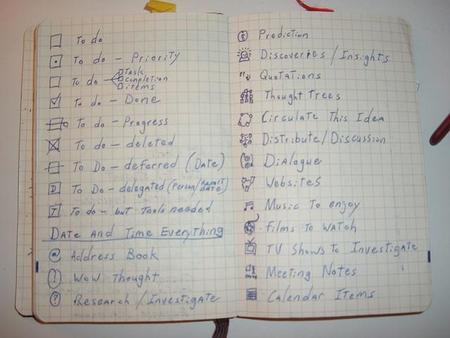 To do
To do - Priority
To do - Task
Completion
items
To do - Done
To do - Progress
To do - deleted
To Do - deferred (Date)
To Do - delegated (Person/ date)
To do - but Tools needed
Date And Time Everything
@ Address Book
! Wow Thought
? Research / Investigate
Prediction
Discoveries / Insights
Quotations
Thought Trees
Circulate This Idea
Distribute / Discussion
Dialogue
Websites
Music To enjoy
Films To Watch
TV Shows To Investigate
Meeting Notes
Calendar Items